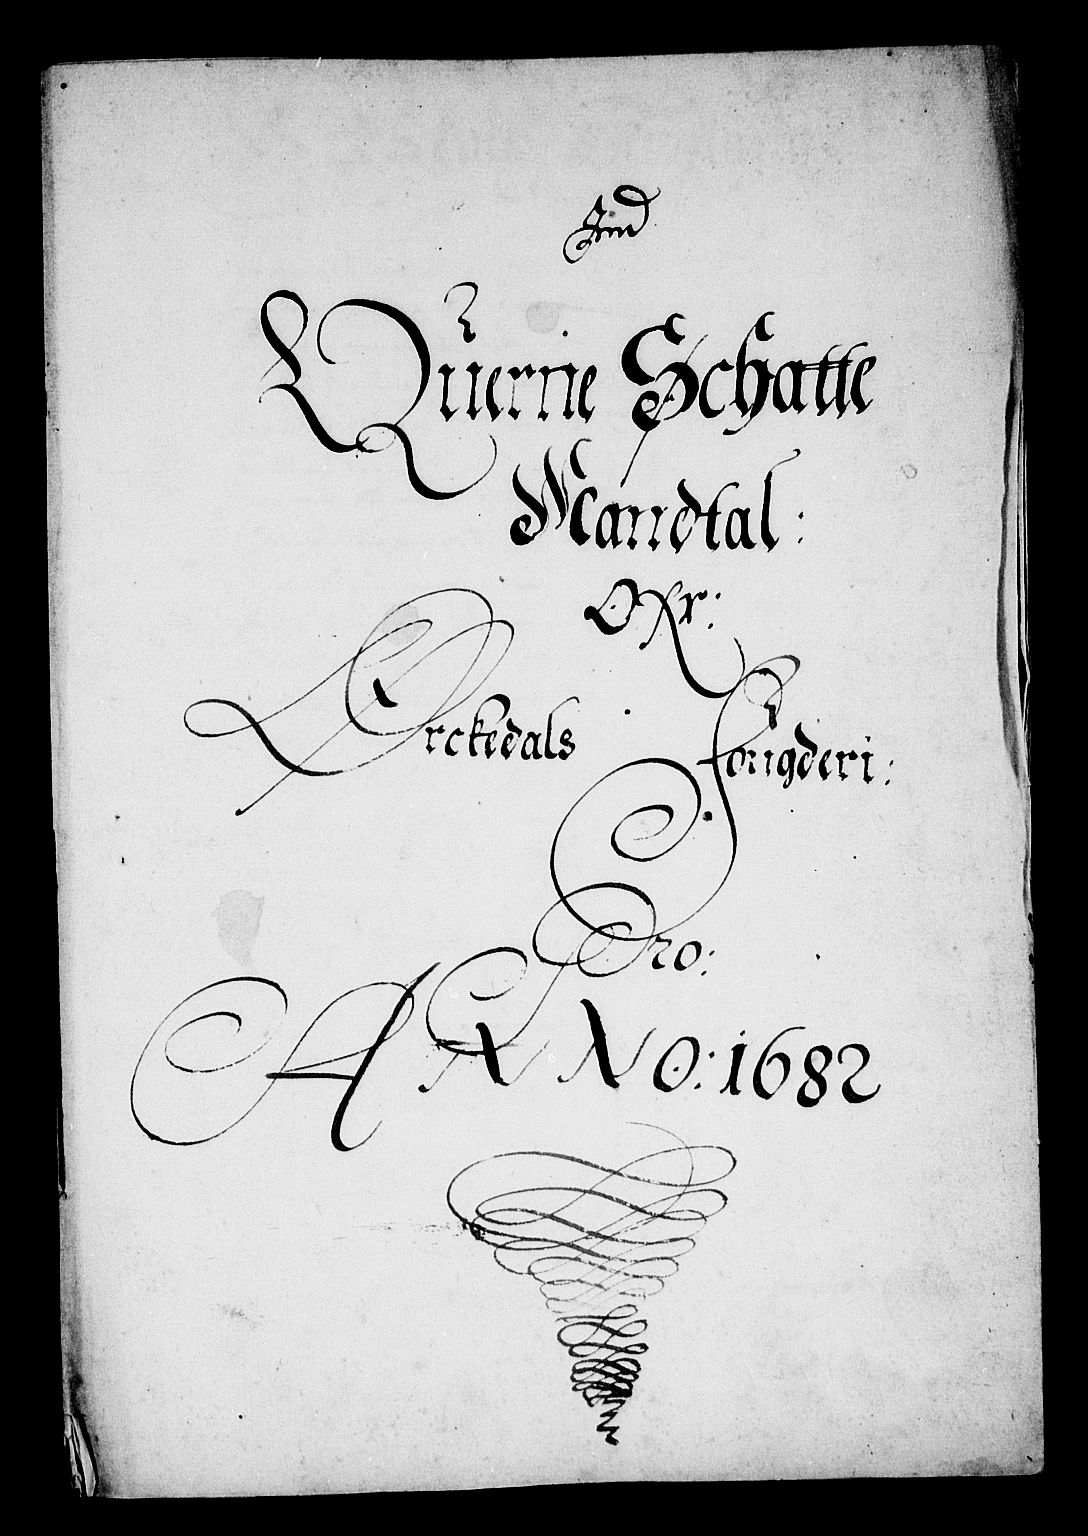 Quernie Schatte
Mandtal:
Ofr:
Orckedals Fougderi:
Pro:
ANNO: 1682